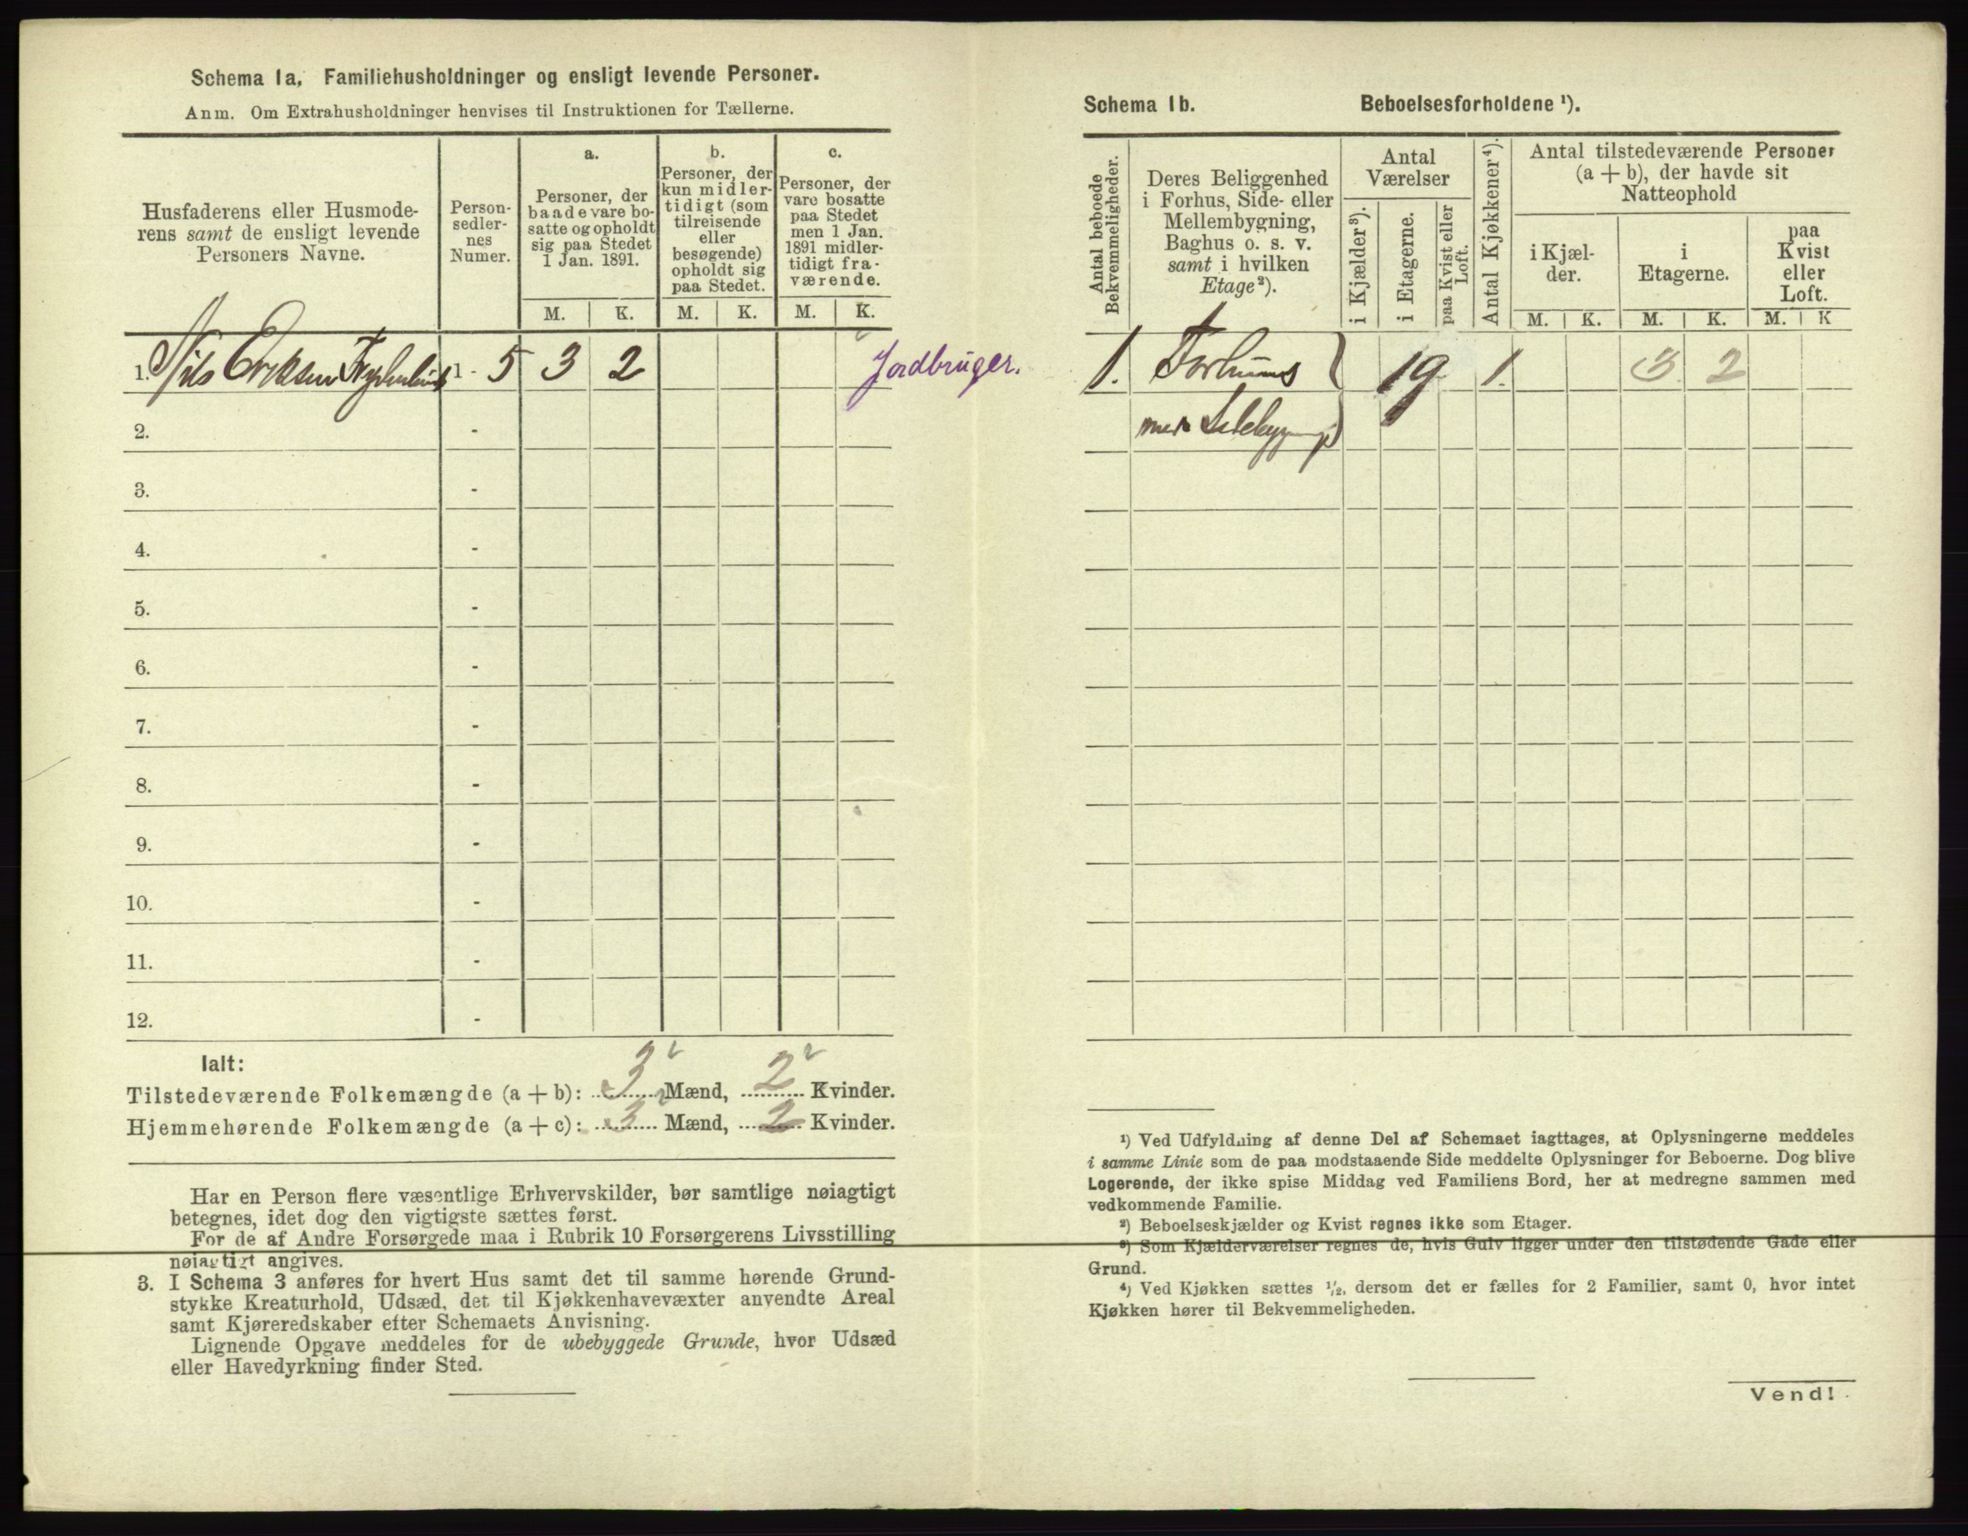 Schema 1a, Familiehusholdninger og ensligt levende Personer.
Anm. Om Extrahusholdninger henvises til Instruktionen for Tællerne.
Husfaderens eller Husmode-
rens samt de ensligt levende
Personers Navne.
Person-
sedler-
nes
Numer.
a.
Personer, der
baade vare bo-
satte og opholdt
sig paa Stedet
1 Jan. 1891.
b.
Personer, der
kun midler-
tidigt (som
tilreisende
eller
besøgende)
opholdt sig
paa Stedet.
c.
Personer, der
vare bosatte
paa Stedet
men 1 Jan.
1891 midler-
tidigt fra-
værende.
M. K. M. K. M. K.
1. Nils Eriksen 1 - 5 3 2 Jordbruger.
2. -
3. -
4. -
5. -
6. -
7. -
8. -
9. -
10. -
11. -
12. -
Ialt:
Tilstedeværende Folkemængde (a + b): 3 Mænd, 2 Kvinder.
Hjemmehørende Folkemængde (a + c): 3 Mænd, 2 Kvinder.
Har en Person flere væsentlige Erhvervskilder, bør samtlige nøiagtigt
betegnes, idet dog den vigtigste sættes først.
For de af Andre Forsørgede maa i Rubrik 10 Forsørgerens Livsstilling
nøiagtigt angives.
3. I Schema 3 anføres for hvert Hus samt det til samme hørende Grund-
stykke Kreaturhold, Udsæd, det til Kjøkkenhavevæxter anvendte Areal
samt Kjøreredskaber efter Schemaets Anvisning.
Lignende Opgave meddeles for de ubebyggede Grunde, hvor Udsæd
eller Havedyrkning finder Sted.
Schema 1b. Beboelsesforholdene ¹).
Antal beboede
Bekvemmeligheder.
Deres Beliggenhed
i Forhus, Side- eller
Mellembygning,
Baghus o. s. v.
samt i hvilken
Etage²).
Antal
Værelser
i Kjælder³).
i Etagerne.
paa Kvist eller
Loft.
Antal Kjøkkener⁴).
Antal tilstedeværende Personer
(a + b), der havde sit
Natteophold
i Kjæl-
der.
i
Etagerne.
paa
Kvist
eller
Loft.
M. K. M. K. M. K
1. Forhuus 19 1. 3 2
med Sidebygning
¹) Ved Udfyldning af denne Del af Schemaet iagttages, at Oplysningerne meddeles
i samme Linie som de paa modstaaende Side meddelte Oplysninger for Beboerne. Dog blive
Logerende, der ikke spise Middag ved Familiens Bord, her at medregne sammen med
vedkommende Familie.
²) Beboelseskjælder og Kvist regnes ikke som Etager.
³) Som Kjælderværelser regnes de, hvis Gulv ligger under den tilstødende Gade eller
Grund.
⁴) Ved Kjøkken sættes ½, dersom det er fælles for 2 Familier, samt 0, hvor intet
Kjøkken hører til Bekvemmeligheden.
Vend!